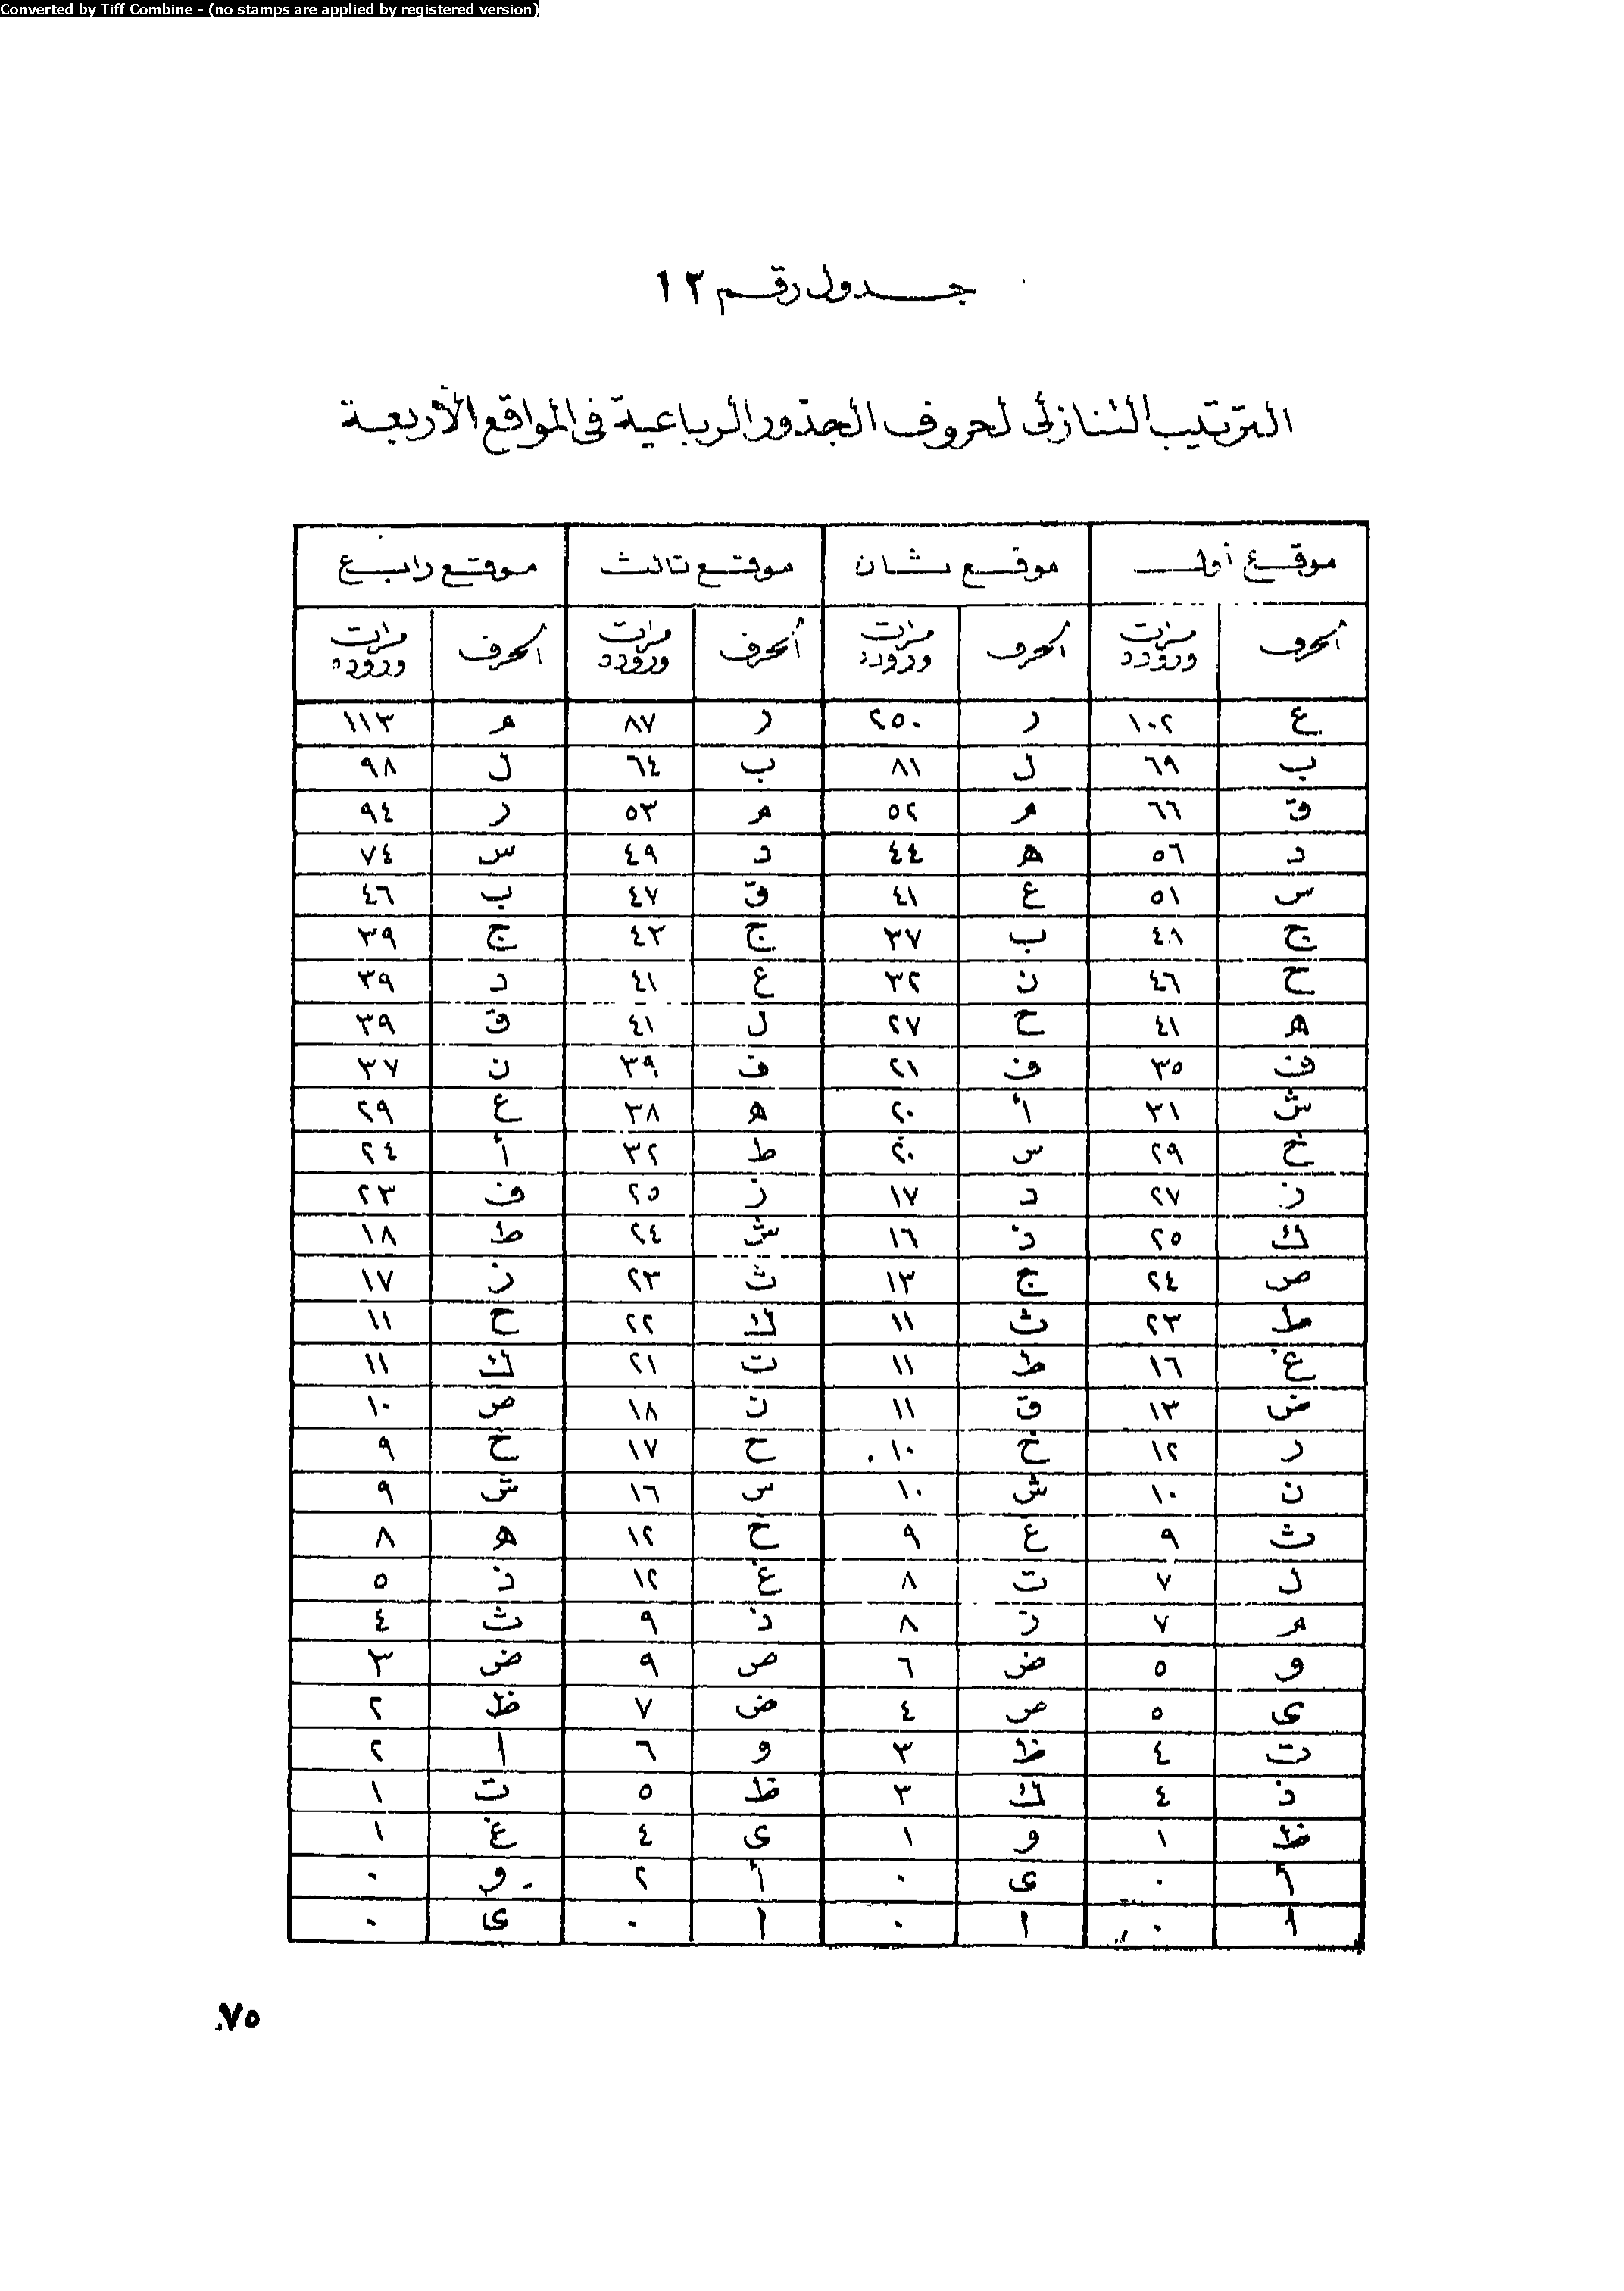 Converted by Tiff Combine - (no stamps are applied by registered version)
جدول رقم ١٢
الترتيب التنازلى لحروف الجذور الرباعية فى المواقع الأربعة
موقع أول موقع ثان موقع ثالث موقع رابع
الحرف مرات وروده الحرف مرات وروده الحرف مرات وروده الحرف مرات وروده
ع ١٠٢ ر ٢٥٠ ر ٨٧ م ١١٣
ب ٦٩ ل ٨١ ب ٦٤ ل ٩٨
ق ٦٦ م ٥٢ م ٥٣ ر ٩٤
د ٥٦ ه ٤٤ د ٤٩ س ٧٤
س ٥١ ع ٤١ ق ٤٧ ب ٤٦
ج ٤٨ ب ٣٧ ج ٤٣ ج ٣٩
ح ٤٦ ن ٣٢ ع ٤١ د ٣٩
ه ٤١ ح ٢٧ ل ٤١ ق ٣٩
ف ٣٥ ف ٢١ ف ٣٩ ن ٣٧
ش ٣١ أ ٢٠ ه ٣٨ ع ٢٩
خ ٢٩ س ٢٠ ط ٣٢ أ ٢٤
ز ٢٧ د ١٧ ز ٢٥ ف ٢٣
ك ٢٥ ذ ١٦ ش ٢٤ ط ١٨
ص ٢٤ ج ١٣ ث ٢٣ ز ١٧
ط ٢٣ ث ١١ ك ٢٢ ح ١١
غ ١٦ ط ١١ ت ٢١ ك ١١
ض ١٣ ق ١١ ن ١٨ ص ١٠
ر ١٢ خ ١٠ ح ١٧ خ ٩
ن ١٠ ش ١٠ س ١٦ ش ٩
ث ٩ غ ٩ خ ١٢ ه ٨
ل ٧ ت ٨ غ ١٢ ذ ٥
م ٧ ز ٨ ذ ٩ ث ٤
و ٥ ض ٦ ص ٩ ض ٣
ى ٥ ص ٤ ض ٧ ظ ٢
ت ٤ ظ ٣ و ٦ ا ٢
ذ ٤ ك ٣ ظ ٥ ت ١
ظ ١ و ١ ى ٤ غ ١
أ ٠ ى ٠ أ ٢ و ٠
ا ٠ ا ٠ ا ٠ ى ٠
٧٥